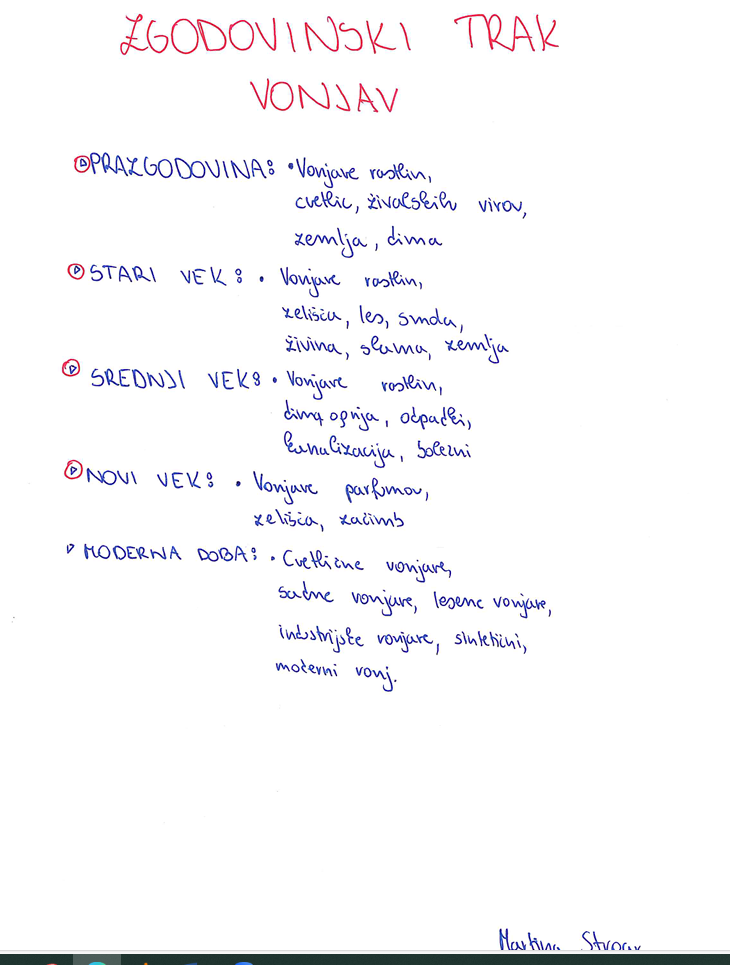 ZGODOVINSKI TRAK
VONJAV
PRAZGODOVINA: • Vonjave rastlin,
cvetlic, živalskih virov,
zemlja, dima
STARI VEK: • Vonjave rastlin,
zelišča, les, smola,
živina, slama, zemlja
SREDNJI VEK: • Vonjave rastlin,
dima ognja, odpadki,
kanalizacija, bolezni
NOVI VEK: • Vonjave parfumov,
zelišča, začimb
MODERNA DOBA: • Cvetlične vonjave,
sadne vonjave, lesene vonjave,
industrijske vonjave, sintetični,
moderni vonj.
Martina